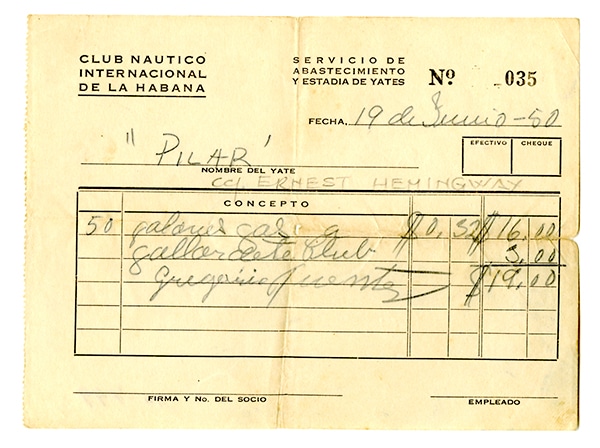 CLUB NAUTICO
INTERNACIONAL
DE LA HABANA
SERVICIO DE
ABASTECIMIENTO
Y ESTADIA DE YATES
Nº 035
FECHA, 19 de Junio-50
"PILAR"
NOMBRE DEL YATE
EFECTIVO CHEQUE
ERNEST HEMINGWAY
CONCEPTO
50 galones gas a $0,32 $16,00
gallardete Club 3,00
Gregorio Fuentes $19,00
FIRMA Y No. DEL SOCIO
EMPLEADO